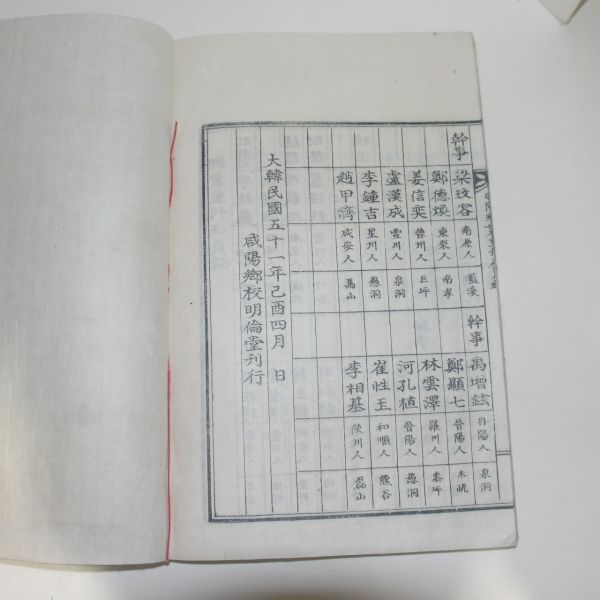 幹事
梁玟容 南原人 藍溪
鄭德煥 東萊人 南孝
姜信奕 晉州人 上坪
盧漢成 豊川人 泉洞
李鍾吉 星州人 愚洞
趙甲濟 咸安人 馬山
幹事
禹增鉉 丹陽人 泉洞
鄭顯七 晉陽人 木峴
林雲澤 羅州人 泰坪
河孔植 晉陽人 愚洞
崔性玉 和順人 熊谷
李相基 陜川人 磊山
大韓民國五十一年己酉四月 日
咸陽鄕校明倫堂刊行